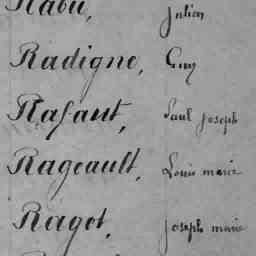 Rabu, Julien
Radigne, Guy
Rafaut, Paul Joseph
Rageault, Louis marie
Ragot, Joseph marie